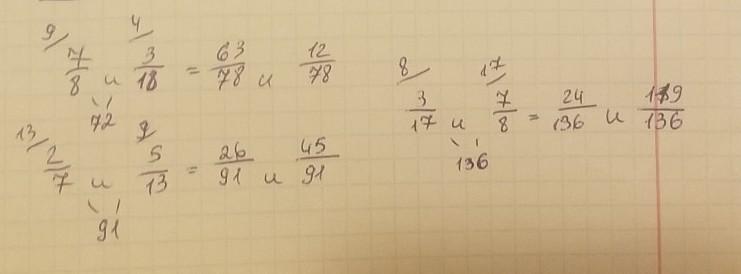 9/ 4/
7/8 и 3/18 = 63/78 и 12/78
72
13/ 9/
2/7 и 5/13 = 26/91 и 45/91
91
8/ 17/
3/17 и 7/8 = 24/136 и 119/136
136